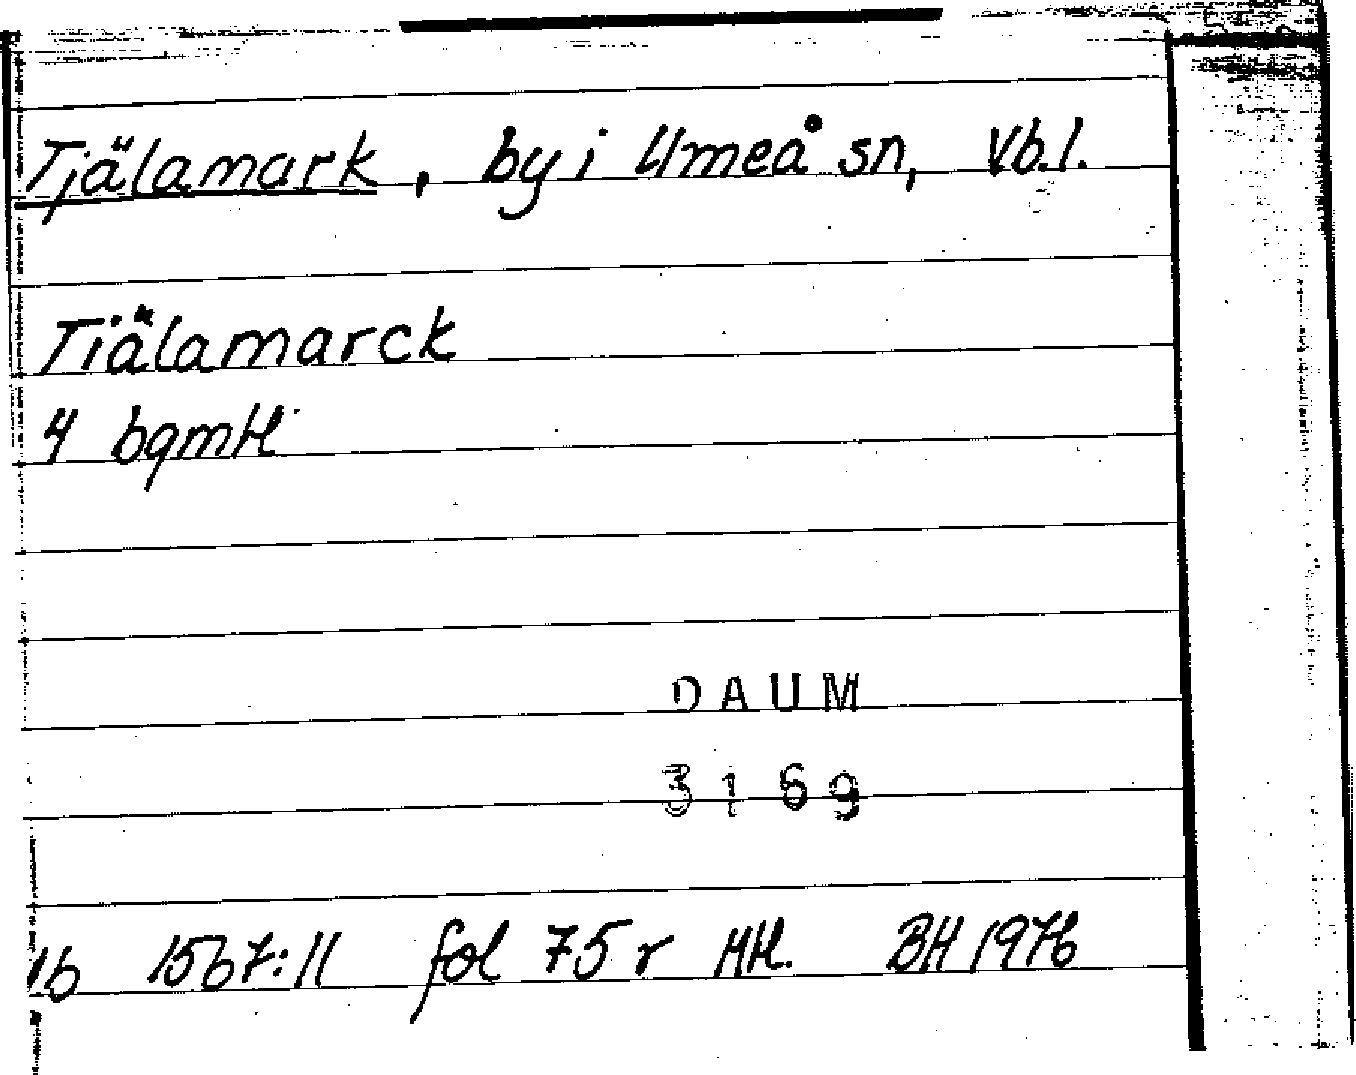 Tjälamark, by i Umeå sn, Vb.l.
Tiälamarck
4 bqmtl
DAUM
3169
1567:11 fol 75 r BH 1976